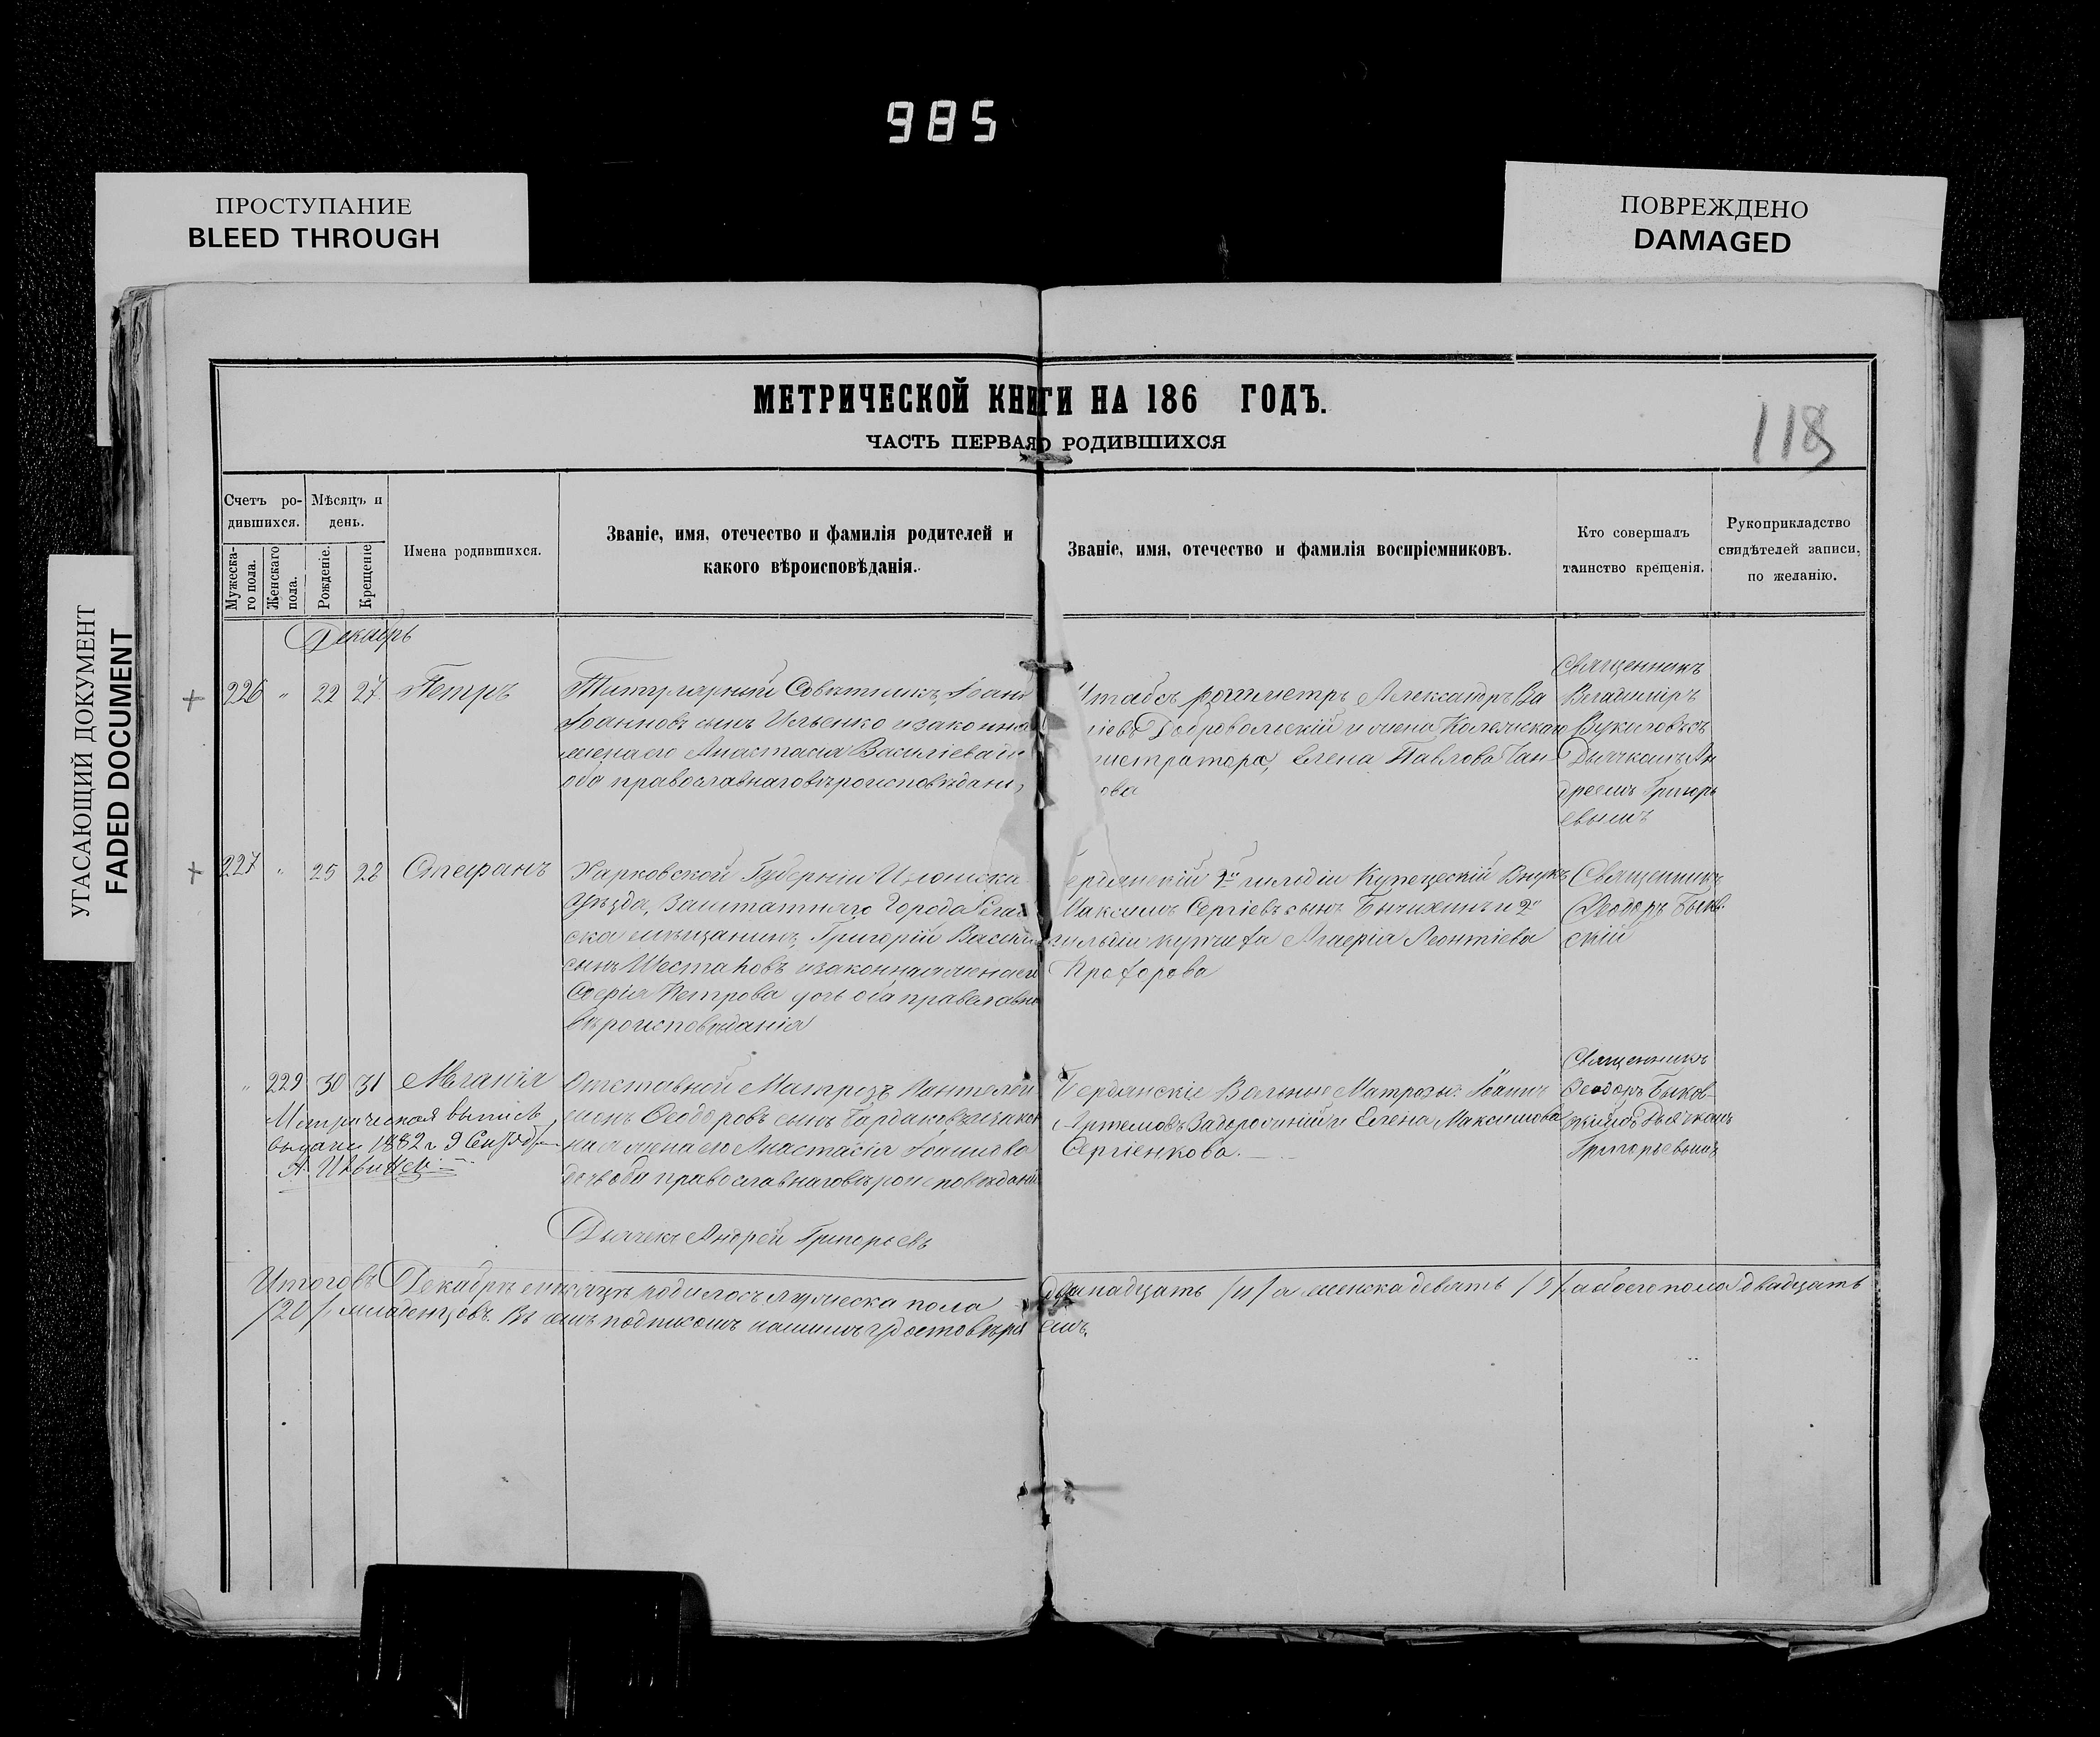 985
ПРОСТУПАНИЕ
BLEED THROUGH
ПОВРЕЖДЕНО
DAMAGED
УГАСАЮЩИЙ ДОКУМЕНТ
FADED DOCUMENT
МЕТРИЧЕСКОЙ КНИГИ НА 186 ГОДЪ.
ЧАСТЬ ПЕРВАЯ О РОДИВШИХСЯ
118
Счетъ ро-
дившихся.
Мужеска-
го пола.
Женскаго
пола.
Мѣсяцъ и
день.
Рожденіе.
Крещеніе
Имена родившихся.
Званіе, имя, отечество и фамилія родителей и
какого вѣроисповѣданія.
Званіе, имя, отечество и фамилія воспріемниковъ.
Кто совершалъ
таинство крещенія.
Рукоприкладство
свидѣтелей записи,
по желанію.
Декабрь
226 " 22 27 Петръ
Титулярный Совѣтникъ, Іоанъ
Іоанновъ сынъ Ильенко и законная
жена его Анастасія Василіева
оба православнаго вѣроисповѣдані
Александръ Ва
Добровольскій и жена
Елена Павлова
ова
Священникъ
Владиміръ
Дьячкомъ Ан
дреемъ Григорь
евымъ
227 " 25 28 Стефанъ
Харковской Губерніи Изюмска
Уѣзда, Заштатнаго Города
ска мѣщанинъ, Григорій
сынъ Шестаковъ и законная жена его
Петрова дочь оба православна
вѣроисповѣданія
гильдіи Купеческій Внукъ
Максимъ Сергіевъ сынъ и 2й
гильдіи Леонтіева
Прохорова
Священникъ
Ѳеодоръ Быков
скій
" 229 30 31 Меланія
Отставной Матрозъ Пантелей
монъ Ѳеодоровъ сынъ и закон
ная жена его Анастасія Іоаннова
дочь оба православнаго вѣроисповѣданія
Бердянскіе Вольные Матрозы: Іоанъ
Артемовъ Задорожній и Елена Максимова
Сергіенкова.
Священникъ
Ѳеодоръ Быков-
скій съ Дьячкомъ
Григорьевымъ
Метрическая выпись
выдана 1882 г 9 Сентября
Дьячекъ Андрей Григорьевъ
Итого въ Декабрѣ мѣсяцѣ родилось мужеска пола
/20/ младенцовъ. Въ чемъ подписомъ нашимъ удостовѣря
/11/ а женска девять /9/ а обоего пола двадцать
емъ.